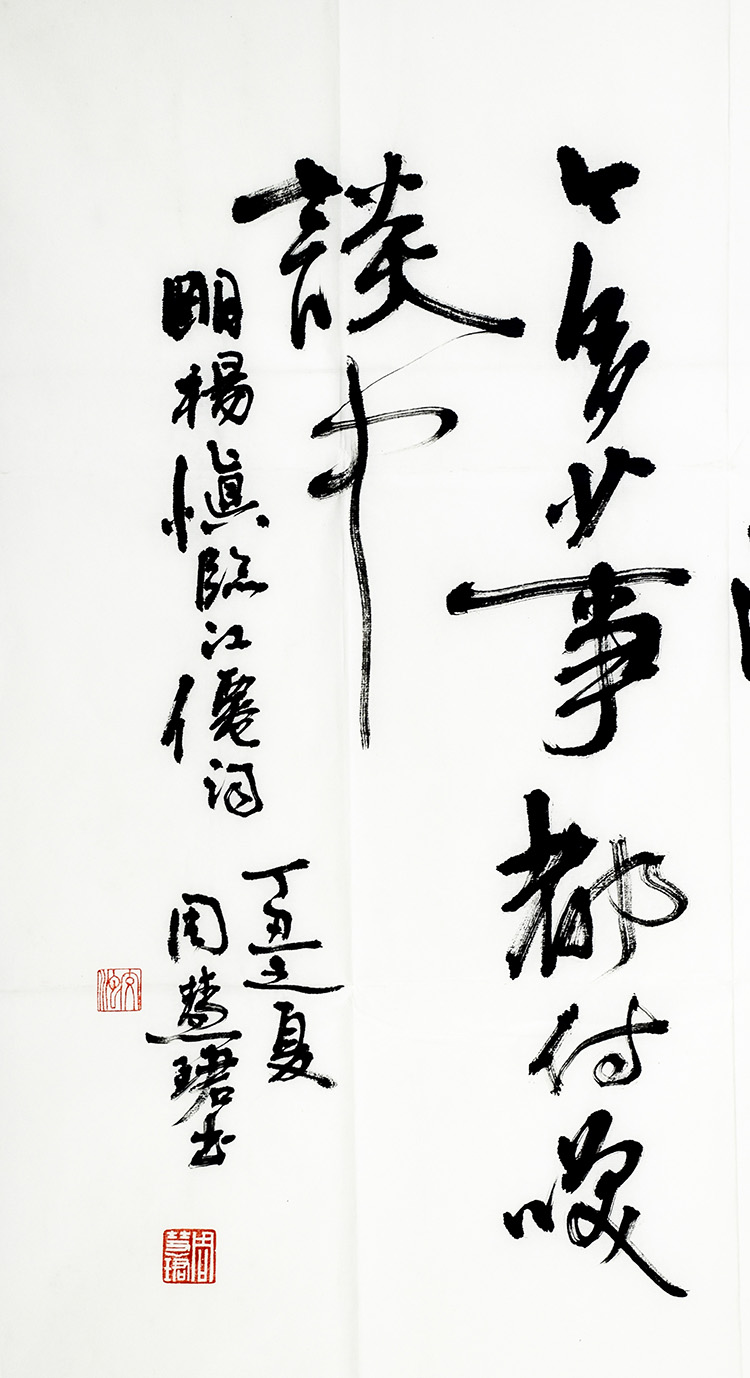 今多少事都付咲
談中
明楊慎臨江僊詞
丁丑之夏
周慧珺书
周慧珺